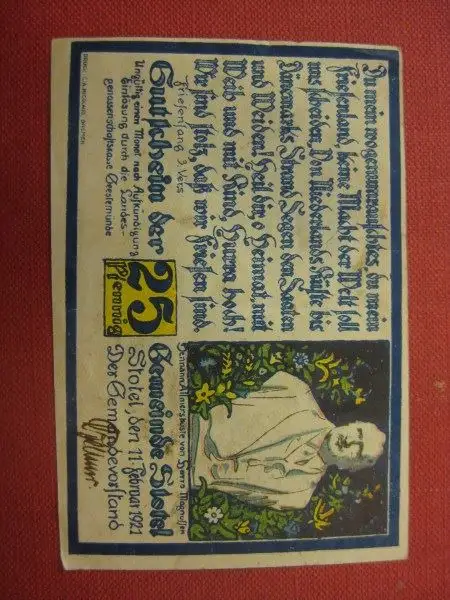 Du mein wogenumrauschtes, du mein
Friesenland, keine Macht der Welt soll
uns scheiden. Von Niederlands Küste bis
Dänemarks Strand Segen den Saaten
und Weiden! Heil dir, o Heimat, mit
Weib und mit Kind, Hurra hoch!
Wir sind stolz, daß wir Friesen sind.
Friesensang 3. Vers.
Hermann Allmers büste von Harro Magnussen
Gutschein der
25
Pfennig
Gemeinde Stotel
Ungültig einen Monat nach Aufkündigung
Einlösung durch die Landes-
genossenschaftskasse Geestemünde
Stotel, den 11. Februar 1921
Der Gemeindevorstand
DRUCK: